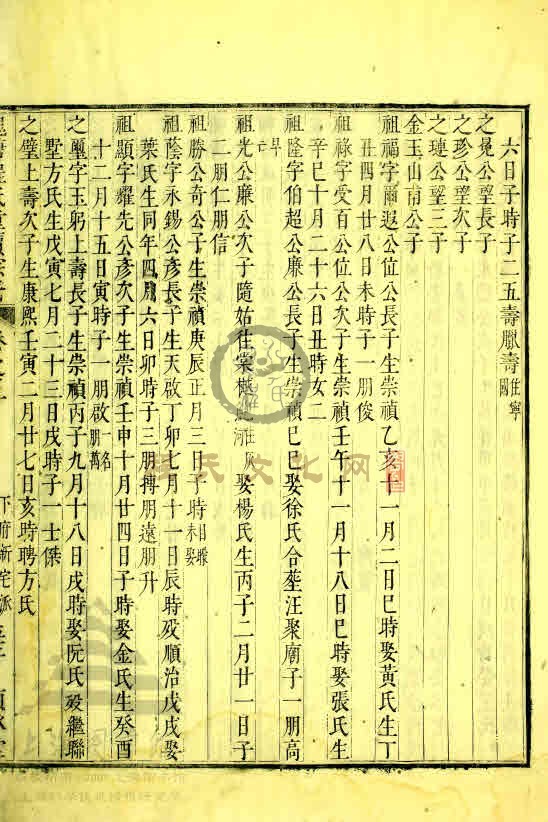 六日子時子二五壽臘壽
之晃公望長子
之珍公望次子
之璉公望三子
金玉山南公子
祖福字爾遐公位公長子生崇禎乙亥十一月二日巳時娶黃氏生丁
丑四月廿八日未時子一朋俊
祖祿字受百公位公次子生崇禎壬午十一月十八日巳時娶張氏生
辛巳十月二十六日丑時女二
祖隆字伯超公廉公長子生崇禎己巳娶徐氏合塟汪聚廟子一朋高
早亡
祖光公廉公次子隨始往棠樾 娶楊氏生丙子二月廿一日子
二朋仁朋信
祖勝公奇公子生崇禎庚辰正月三日子時
祖蔭字永錫公彥長子生天啟丁卯七月十一日辰時歿順治戊戌娶
葉氏生同年四月六日卯時子三朋摶朋遠朋升
祖顯字耀先公彥次子生崇禎壬申十月廿四日子時娶金氏生癸酉
十二月十五日寅時子一朋啟一名朋萬
之璽字玉躬上壽長子生崇禎丙子九月十八日戌時娶阮氏歿繼聯
墅方氏生戊寅七月二十三日戌時子一士傑
之璧上壽次子生康熙壬寅二月廿七日亥時聘方氏